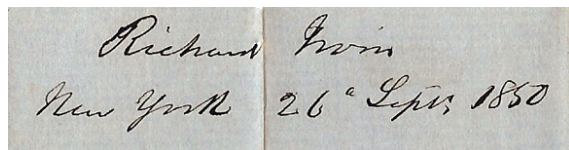 Richard Irvin
New York 26" Septr 1850